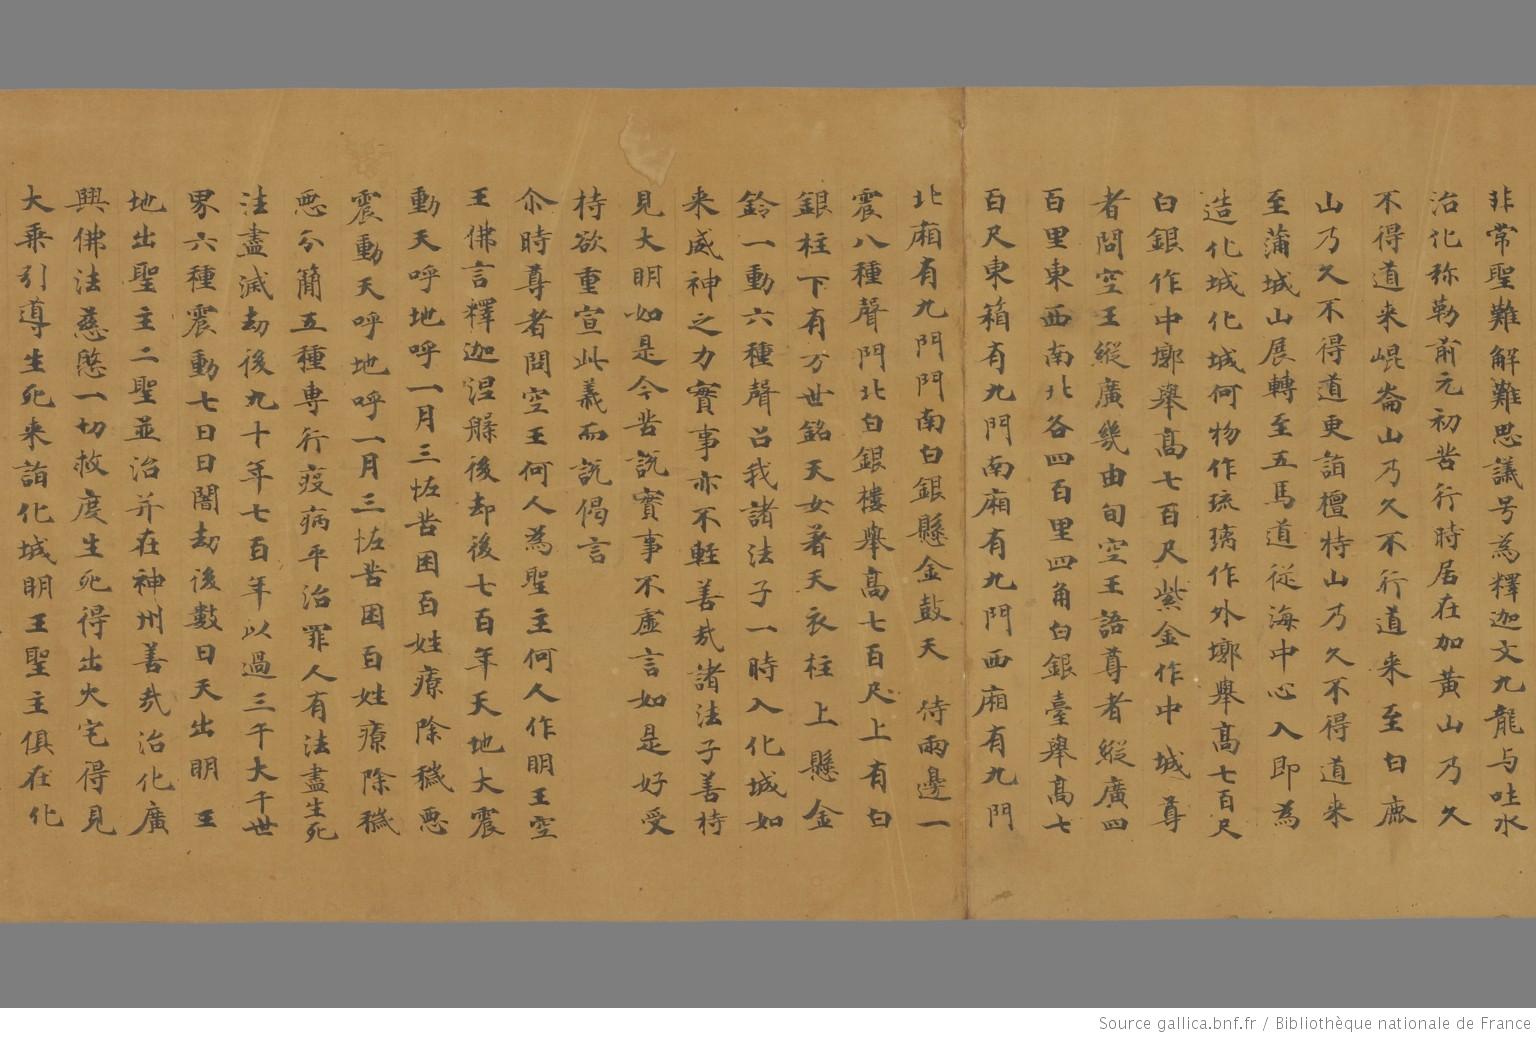 非常聖難解難思議号為釋迦文九龍与吐水
治化称勒前元初苦行時居在加黃山乃久
不得道来崐崙山乃久不行道来至白鹿
山乃久不得道更詣檀特山乃久不得道来
至蒲城山展轉至五馬道従海中心入即為
造化城化城何物作琉璃作外墎舉高七百尺
白銀作中墎舉高七百尺紫金作中城尊
者問空王縱廣幾由旬空王語尊者縱廣四
百里東西南北各四百里四角白銀臺舉高七
百尺東箱有九門南廂有九門西廂有九門
北廂有九門門南白銀懸金鼓天侍兩邊一
震八種聲門北白銀樓舉高七百尺上有白
銀柱下有万世銘天女著天衣柱上懸金
鈴一動六種聲召我諸法子一時入化城如
来威神之力實事亦不輕善㢤諸法子善持
見大明如是今苦說實事不虛言如是好受
持欲重宣此義而說偈言
尒時尊者問空王何人為聖主何人作明王空
王佛言釋迦涅槃後却後七百年天地大震
動天呼地呼一月三恠苦困百姓療除穢惡
震動天呼地呼一月三恠苦困百姓療除穢
惡分簡五種專行疫病平治罪人有法盡生死
法盡滅劫後九十年七百年以過三千大千世
界六種震動七日日闇劫後數日天出明王
地出聖主二聖並治并在神州善㢤治化廣
興佛法慈愍一切救度生死得出火宅得見
大乘引導生死来詣化城明王聖主俱在化
Source gallica.bnf.fr / Bibliothèque nationale de France